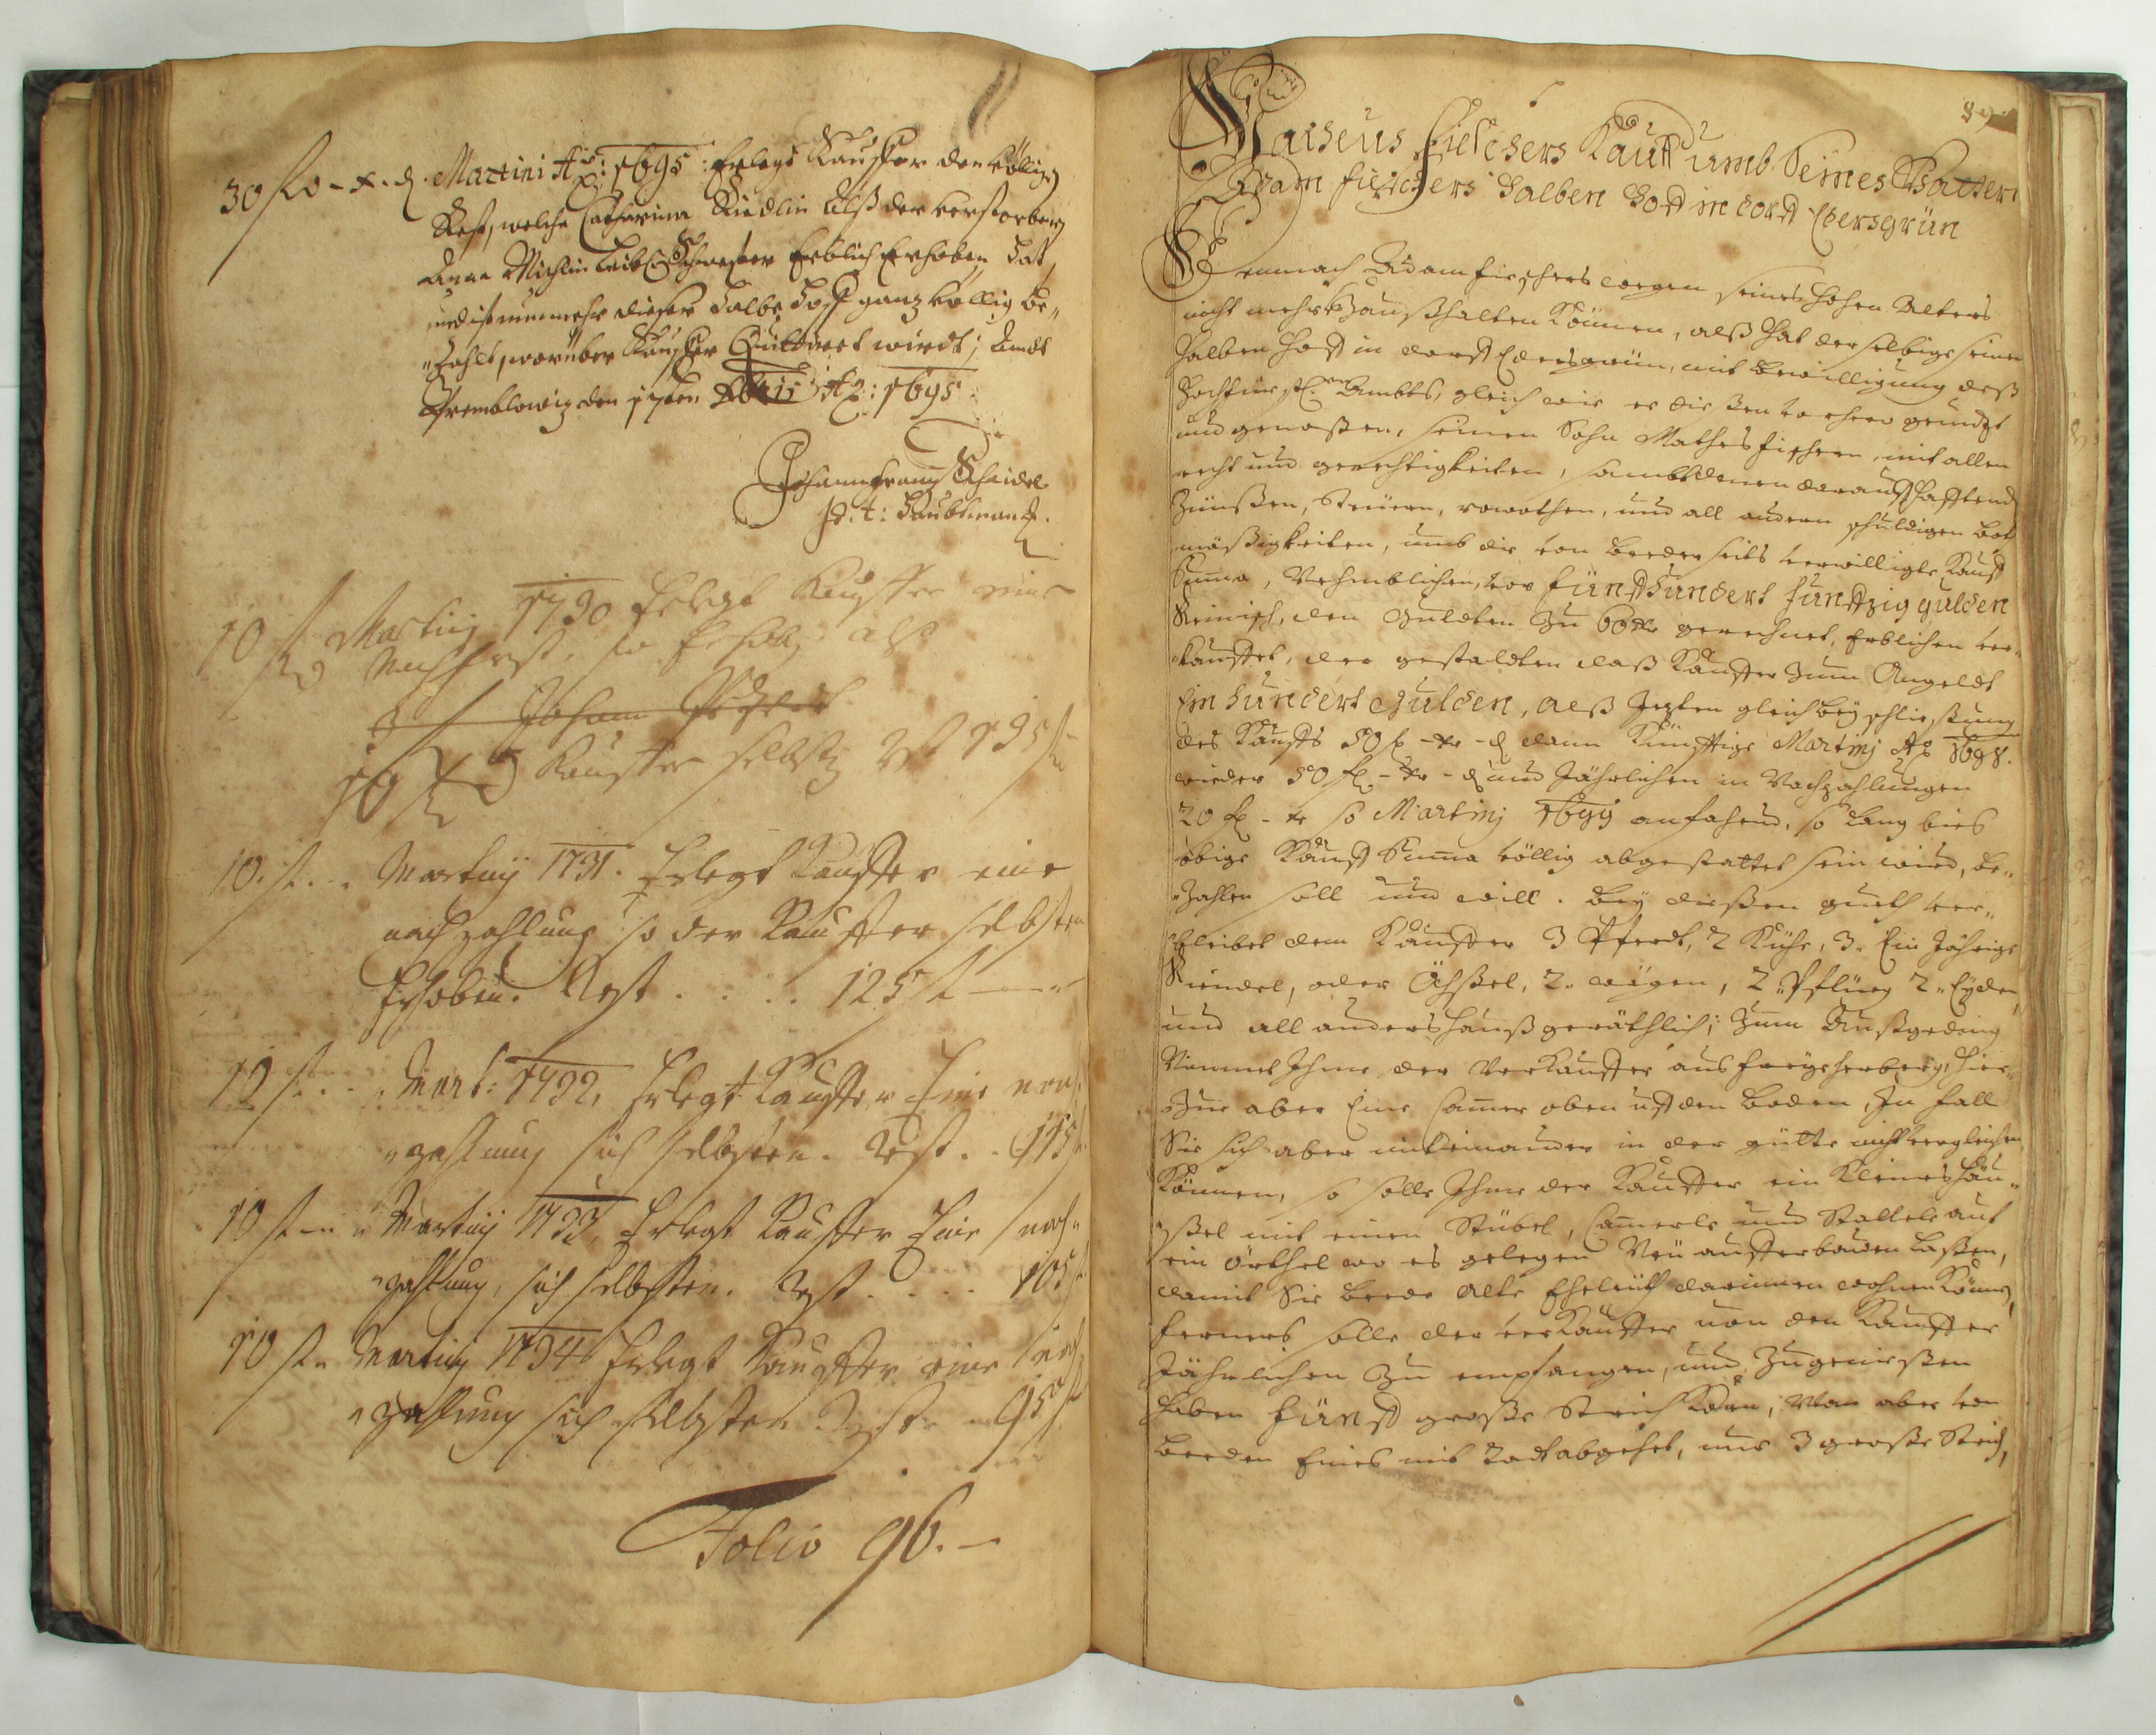 30 fl 0 - x - d. Martini Ao: 1695: Erlegt Kauffer den völligen
Rest, welche Catharina Riedlin Alß der verstorbenen
Anna Michlin Leibl. Schwester Erblich Erhoben, hat
und ist nunmehr dießer halbe Hoff gantz völlig be„
„zahlt, worüber Kauffer Quitiret wirdt; Ambt
den 15ten Xbris Ao: 1695
Johann Frantz Scheidel
p. t: Haubtman
10 fl Martinj 1730 Erlegt Kauffer eine
Nachfrist, so Erhebt als
Johann
10 fl Kauffer selbsten Rest 135 fl
10. fl. „ Martinij 1731. Erlegt Kauffer eine
nachzahlung so der Kauffer selbsten
Erhoben. Rest . . . . 125 fl
10 fl. . . „ Mart: 1732, Erlegt Kauffer Eine nach
„zahlung sich selbsten. Rest . . 115 fl
10 fl — „ Martinij 1733, Erlegt Kauffer Eine nach„
„zahlung, sich selbsten. Rest . . . . 105 fl
10 fl „ Martinij 1734 Erlegt Kauffer eine nach
„zahlung sich selbsten Rest „ 95 fl
Folio 96. —
89
Matheus Fischers Kauff umb Seines Vattern
Adam Fischers halben Hoff in dorff Ebersgrün
Demnach Adam Fischers wegen seines hohen Alters
nicht mehr Haußhalten können, alß hat derselbige seinen
halben Hoff in dorff Ebersgrün, mit bewilligung deß
Hochfürstl. Ambts, gleich wie er dießen vorhero genutzt
und genoßen, seinen Sohn Mathes Fischern, mit allen
recht und gerechtigkeiten, sambt denen darauf hafftend
Zünßen, Steüern, rowothen, und all andern schuldigen bot
mäßigkeiten, umb die von beederseits verwilligte Kauff
Summa, Nehmblichen, vor Fünffhundert Funffzig gulden
Reinisch, den Gulden Zu 60 xr gerechnet, Erblichen ver„
„kauffet, der gestaldten daß Kauffer Zum Angeldt
Ein hundert Gulden, alß Jezten gleich bey schließung
des Kauffs 50 fl - xr - d dann Künfftige Martinj Ao 1698.
wieder 50 fl - xr - d und Jährlichen in Nachzahlungen
20 fl - xr so Martinj 1699 anfahend, so lang bies
obige Kauff Suma völlig abgestattet sein wird, be„
„zahlen soll und will. Bey dießen gueth ver„
bleibet dem Kauffer 3 Pferdt, 2 Kühe, 3. Ein Jährige
Riendel, oder Öchßel, 2. wägen, 2 „Pflüeg 2 „Eyden
und all anders haußgeräthlich; Zum Außgeding
Nimmet Ihme der Verkauffer aus freye herberg, hier„
„Zue aber Eine Camer oben uf den boden, In fall
Sie sich aber miteinander in der gütte nicht vergleichen
können, so solle Ihme der Kauffer ein kleines Häu„
„ßel mit einen Stübel, Camerle und Stallele auf
ein örthel wo es gelegen Neü aufferbauen laßen,
damit Sie beede alte Eheleüth darinnen wohnen können
ferners solle der verkauffer von den Kauffer
Jährlichen Zu empfangen, und Zugenießen
haben Fünff große Strich Korn, Wan aber von
beeden Eines mit Todt abgehet, nur 3 große Strich,